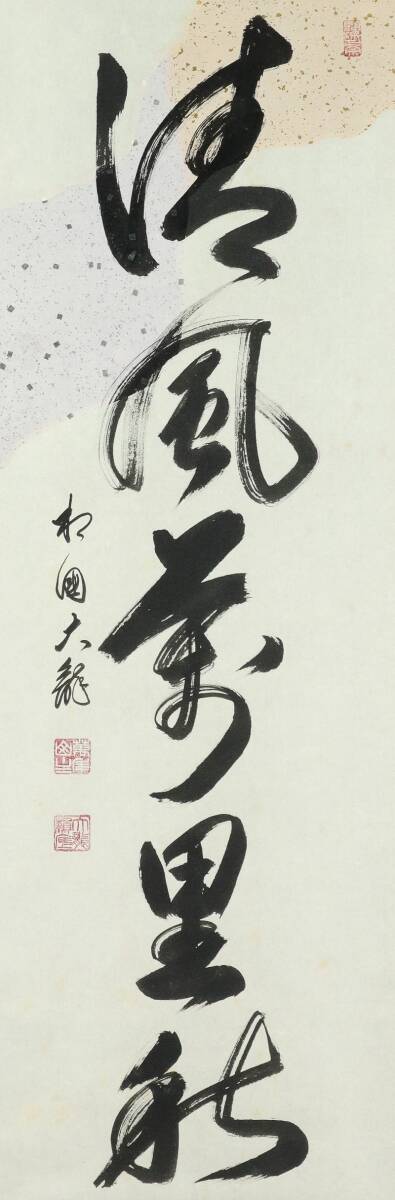 清風萬里秋
相國大龍